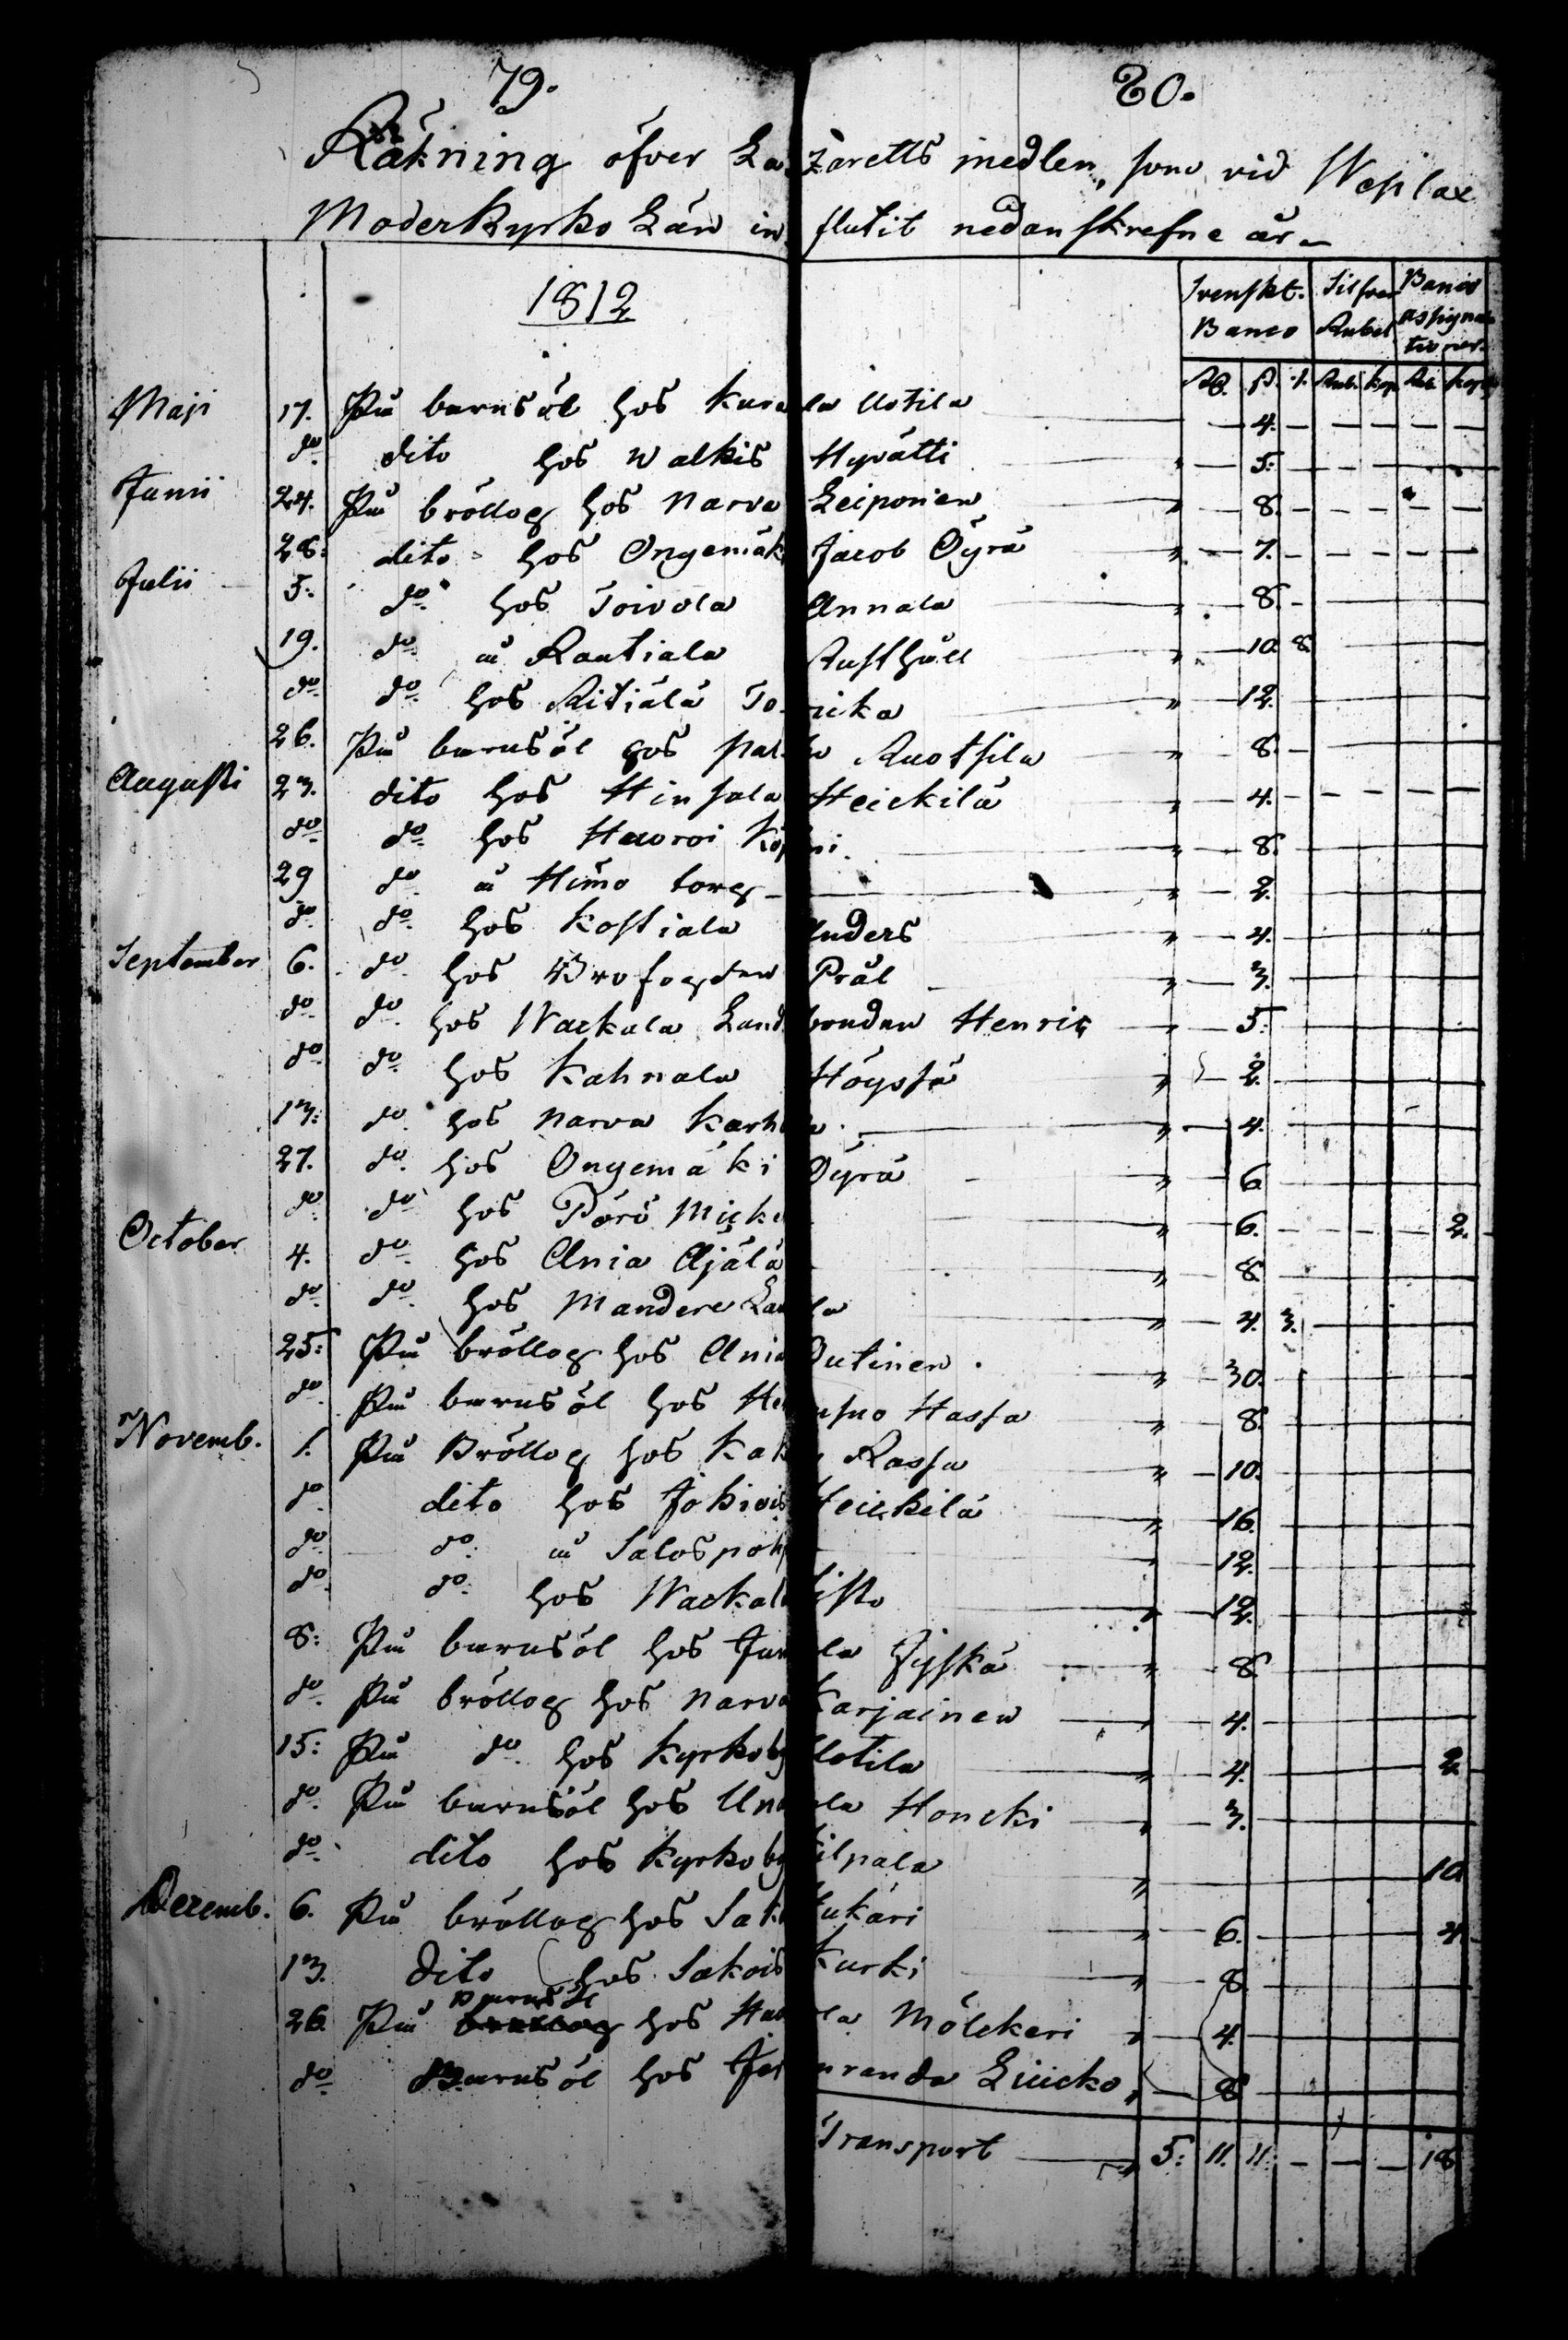 79. 80.
Räkning öfver Lazaretts medlen, som vid Wesilax
Moderkyrko Län influtit nedanskrefne år
1812
Svenskt. Silfver Banco
Banco Rubel assigna
tioner.
Rd. ß. r. Rub. kop. Rub. kop.
Maji 17. På barnsöl hos Kurala Uotila 4.
do dito hos Walkis Hyrätti 5.
Junii 24. På bröllog hos Narva Leiponen 8.
28. dito hos Ongemäk Jacob Öyrä 7.
Julii 5. do hos Toivola Annala 8.
19. do å Rautiala Rusthåll 10. 8.
do do hos Ritiälä To ricka 12.
26. På barnsöl hos Pal Ruotsila 8.
Augusti 23. dito hos Hinsala Heickilä 4.
do do hos Hauroi 8.
29 do å Himo torg 2.
do do hos Kostiala Anders 4.
September 6. do hos Brofogden Präl 3.
do do hos Wackala Landbonden Henric 5.
do do hos Kahnala Höyssä 2.
13. do hos Narva Karh 4.
27. do hos Ongemäki Öyrä 6
do do hos Pörö Micke 6. 2.
October 4. do hos Ania Äjälä 8
do do hos Mandere La la 4. 3.
25. På bröllog hos Ania Outinen 30.
do På barnsöl hos Hassa 8.
Novemb. 1. På Bröllog hos Kak Rassa 10.
do dito hos Jokiois Heickilä 16.
do do å Salospohj 12.
do do hos Wackal isto 12.
8. På barnsöl hos Jun la Jyskä 8.
do På bröllog hos Narva Karjainen 4.
15. På do hos Kyrkoby Uotila 4. 2.
do På barnsöl hos Una la Honcki 3.
do dito hos Kyrkoby Kilpala 10
Decemb. 6. På bröllog hos Sak Hukari 6. 4
13. Dito hos Sakois Kurki 8
26. På Barnsöl hos Hau la Mölckeri 4.
do Barnsöl hos Jun randa Liucko 8
Transport 5. 11. 11. 18